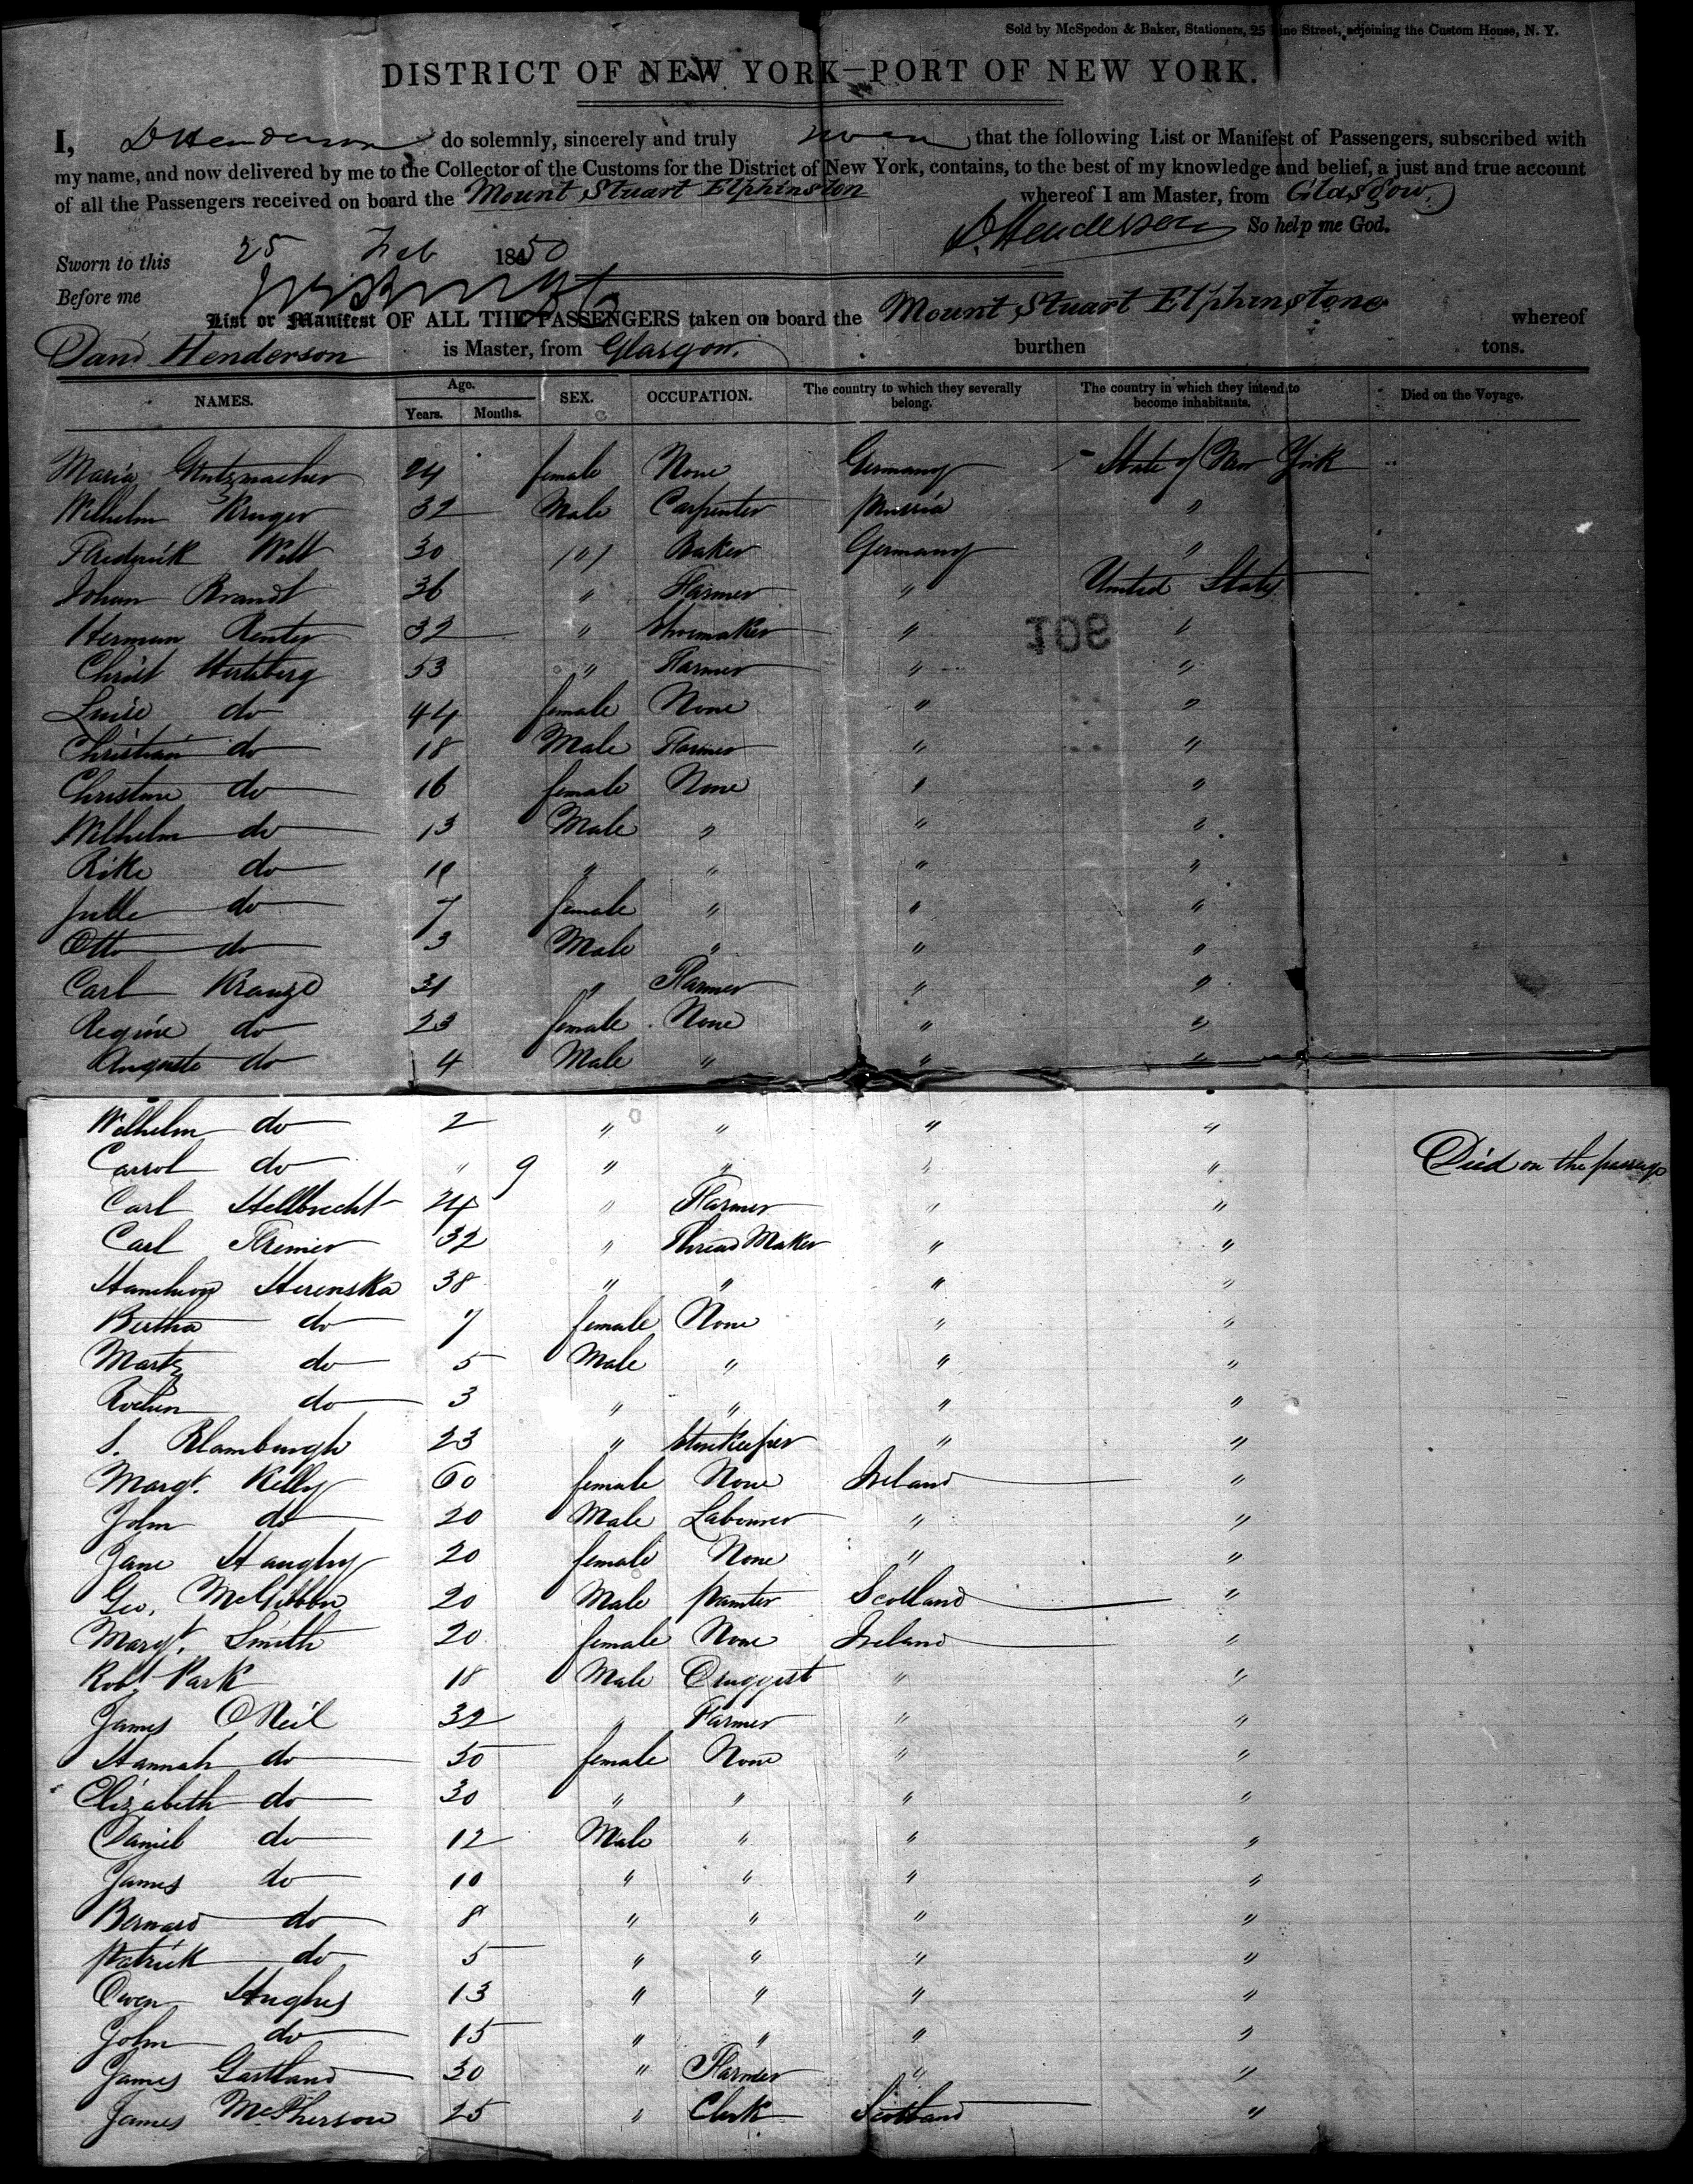 Sold by McSpedon & Baker, Stationers, 25 Pine Street, adjoining the Custom House, N. Y.
DISTRICT OF NEW YORK—PORT OF NEW YORK.
I, D Henderson do solemnly, sincerely and truly that the following List or Manifest of Passengers, subscribed with
my name, and now delivered by me to the Collector of the Customs for the District of New York, contains, to the best of my knowledge and belief, a just and true account
of all the Passengers received on board the Mount Stuart Elphinston whereof I am Master, from Glasgow.
D. Henderson So help me God.
Sworn to this 25 Feb 1850
Before me
List or Manifest OF ALL THE PASSENGERS taken on board the Mount Stuart Elphinstone whereof
Danl Henderson is Master, from Glasgow. burthen tons.
NAMES. Age. Years. Months. SEX. OCCUPATION. The country to which they severally belong. The country in which they intend to become inhabitants. Died on the Voyage.
Maria Gutzmacher 24 female None Germany State of New York
Wilhelm Kruger 32 Male Carpenter Prussia "
Fredrick Witt 30 " Baker Germany "
Johan Brandt 36 " Farmer " United States
Herman Renter 32 " Shoemaker " "
106
Christ Hertzberg 53 " Farmer " "
Luise do 44 female None " "
Christian do 18 Male Farmer " "
Christine do 16 female None " "
Wilhelm do 13 Male " " "
Rike do " " " "
Julle do 7 female " " "
Otto do 3 Male " " "
Carl Krauze 31 " Farmer " "
Regine do 23 female None " "
Auguste do 4 Male " " "
Wilhelm do 2 " " " "
Carrol do " 9 " " " " Died on the passage
Carl Hellbrecht 24 " Farmer " "
Carl Fremier 32 " Thread Maker " "
Herenska 38 " " " "
Bertha do 7 female None " "
do 5 Male " " "
do 3 " " " "
S. Blamburgh 23 " Storekeeper " "
Margt. Kelly 60 female None Ireland "
John do 20 Male Labourer " "
Jane Haughy 20 female None " "
Geo. McGibbon 20 Male Painter Scotland "
Margt. Smith 20 female None Ireland "
Robt Park 18 Male Druggist " "
James ONeil 32 " Farmer " "
Hannah do 30 female None " "
Elizabeth do 30 " " " "
Daniel do 12 Male " " "
James do 10 " " " "
Bernard do 8 " " " "
Patrick do 5 " " " "
Owen Hughes 13 " " " "
John do 15 " " " "
James Gartland 30 " Farmer " "
James McPherson 25 " Clerk Scotland "